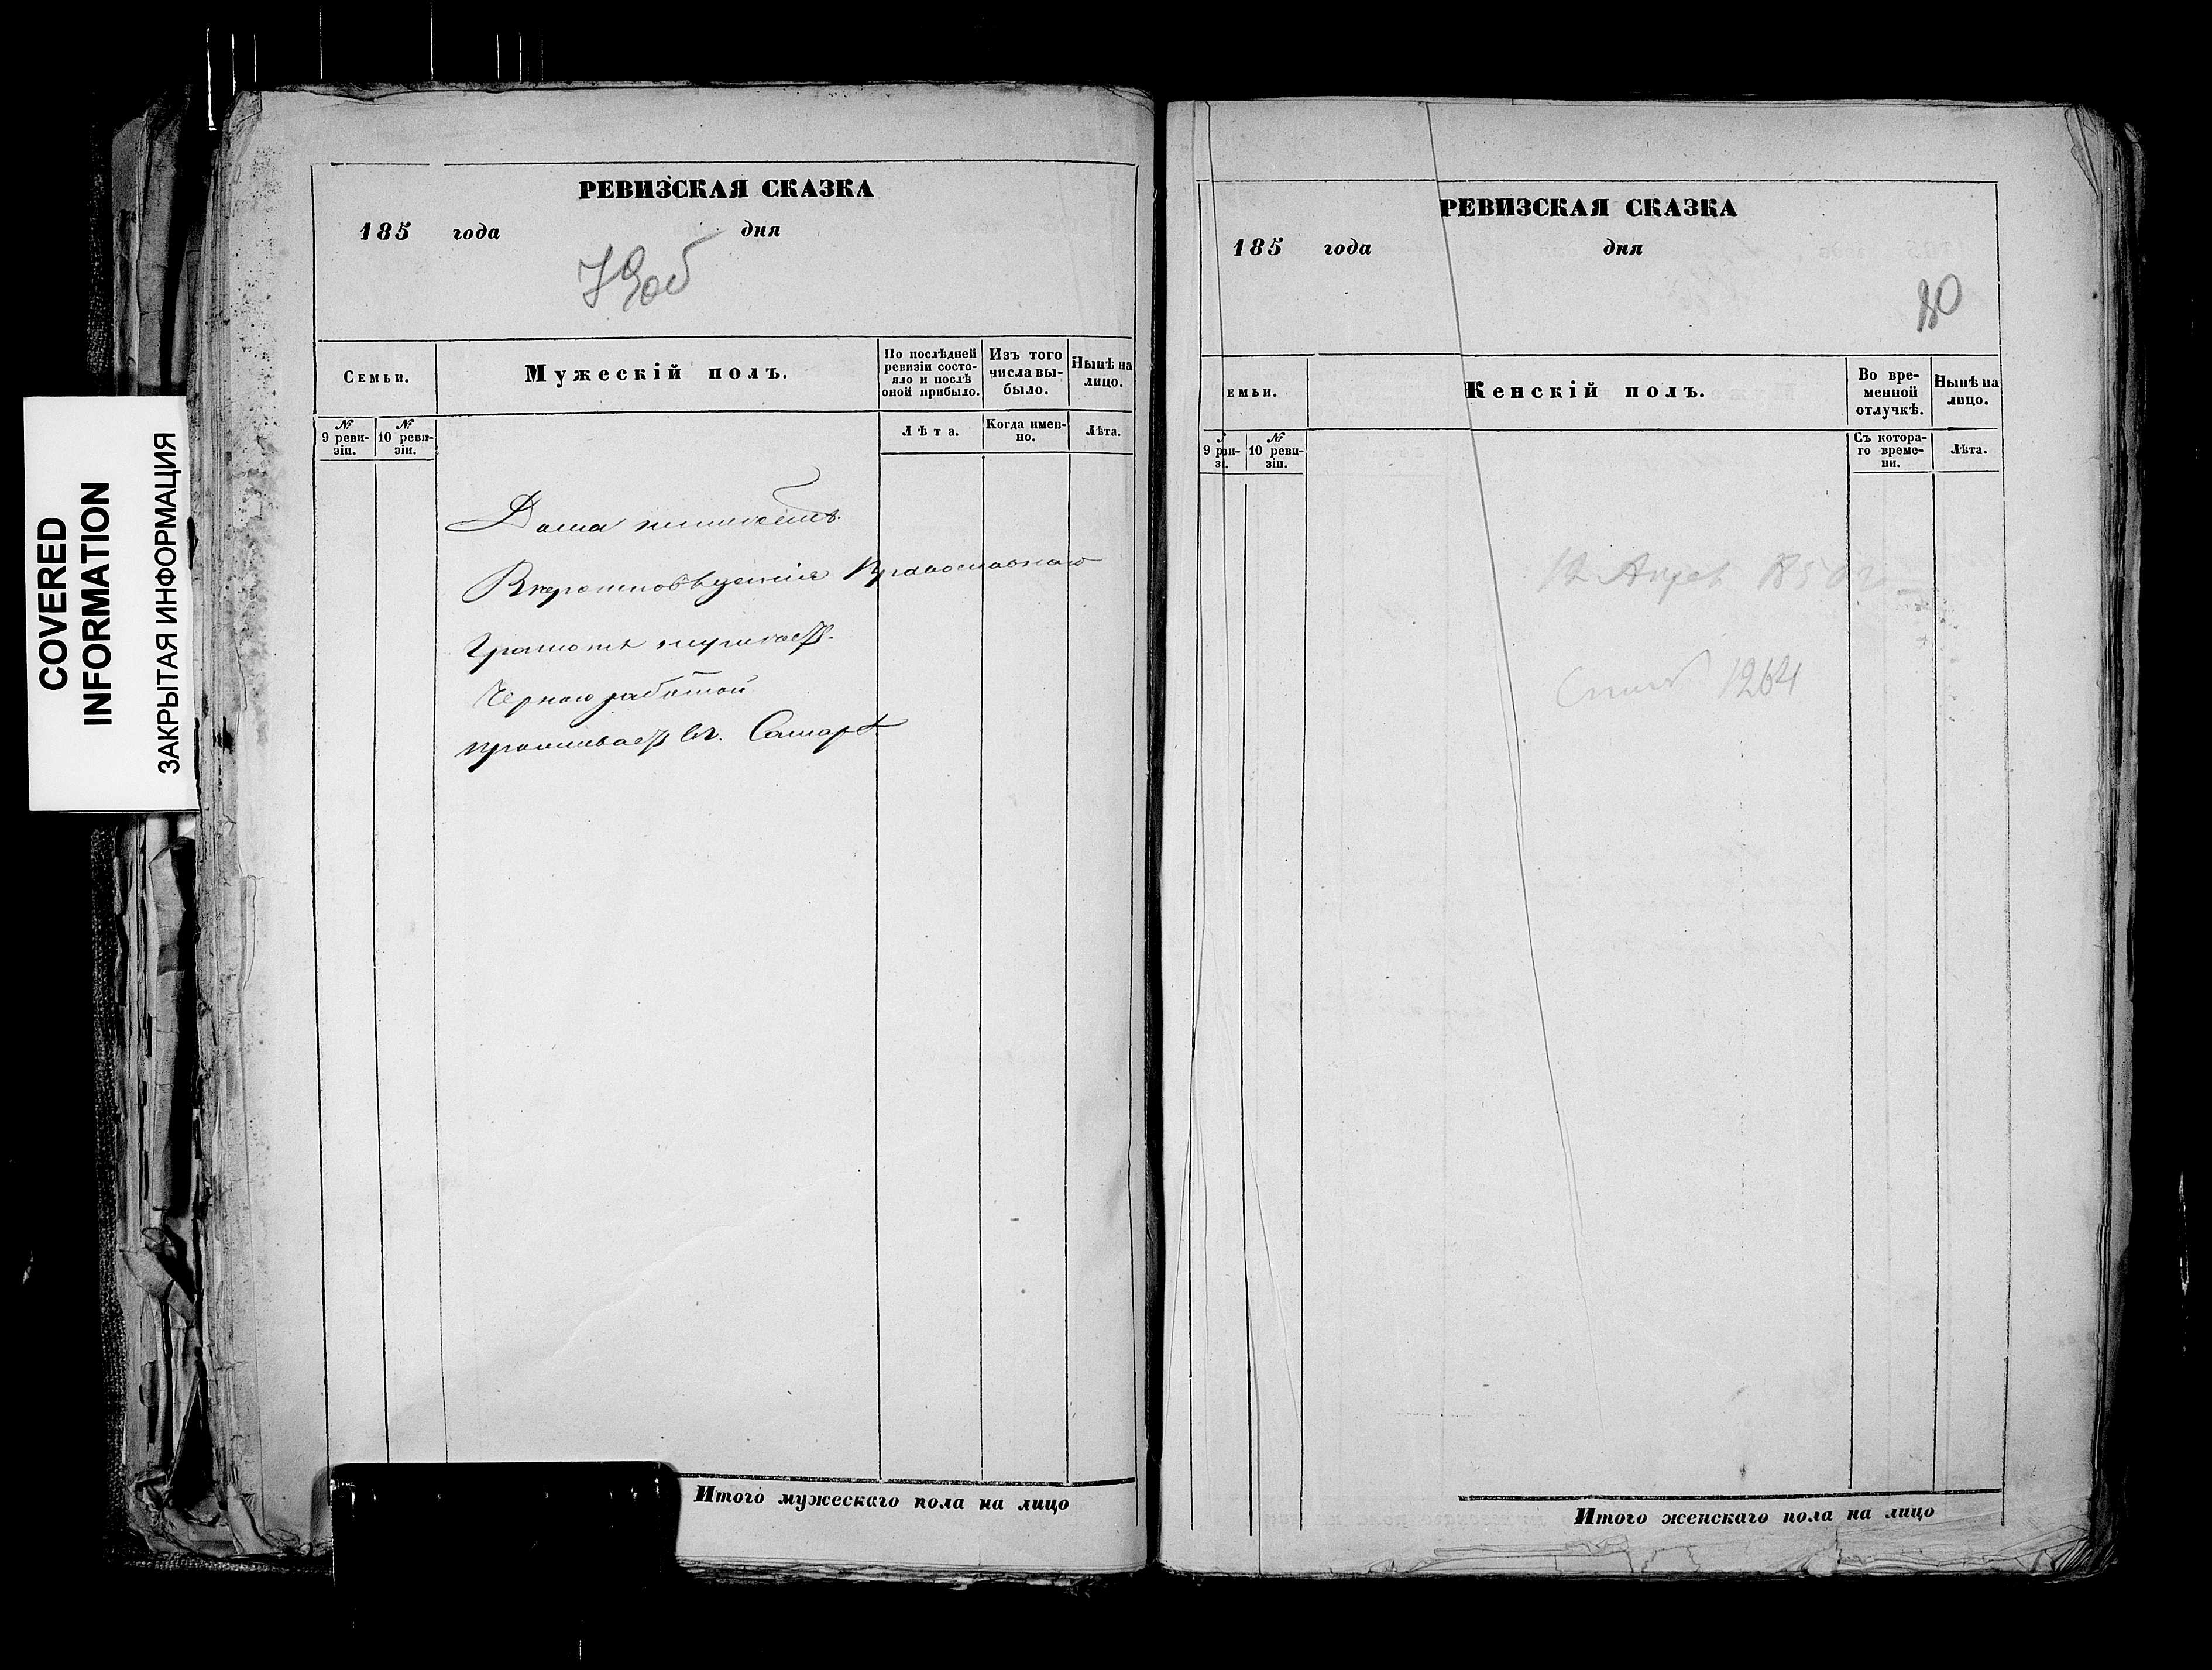 COVERED
INFORMATION
ЗАКРЫТАЯ ИНФОРМАЦИЯ
РЕВИЗСКАЯ СКАЗКА
185 года дня
79об
Семьи.
Мужескій полъ.
По послѣдней ревизіи состояло и послѣ оной прибыло.
Изъ того числа выбыло.
Нынѣ на лицо.
№ 9 ревизіи.
№ 10 ревизіи.
Лѣта.
Когда именно.
Лѣта.
Дома неимѣетъ.
Вѣроисповѣданія Православнаго
Грамоте неумѣетъ.
Черною работой
проживаетъ въ г. Самарѣ
Итого мужескаго пола на лицо
РЕВИЗСКАЯ СКАЗКА
185 года дня
80
емьи.
Женскій полъ.
Во временной отлучкѣ.
Нынѣ на лицо.
№ 9 ревизіи.
№ 10 ревизіи.
Съ котораго времени.
Лѣта.
1264
Итого женскаго пола на лицо